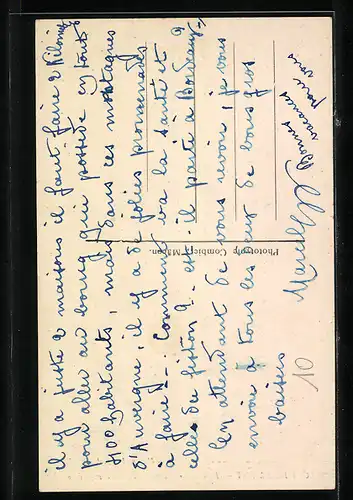 il y a juste 2 maisons il faut faire 2 Kilom
pour aller au bourg qui possède en tout
400 habitants, mais dans ces montagnes
d'Auvergne, il y a de jolies promenades
à faire. Comment va la santé et
celle de fiston? est-il parti à Bordeaux?
En attendant de vous revoir, je vous
envoie à tous les deux de bons gros
baisers
Marcelle
Bonnes
vacances
pour
vous
Photographe Combier Mâcon.
10